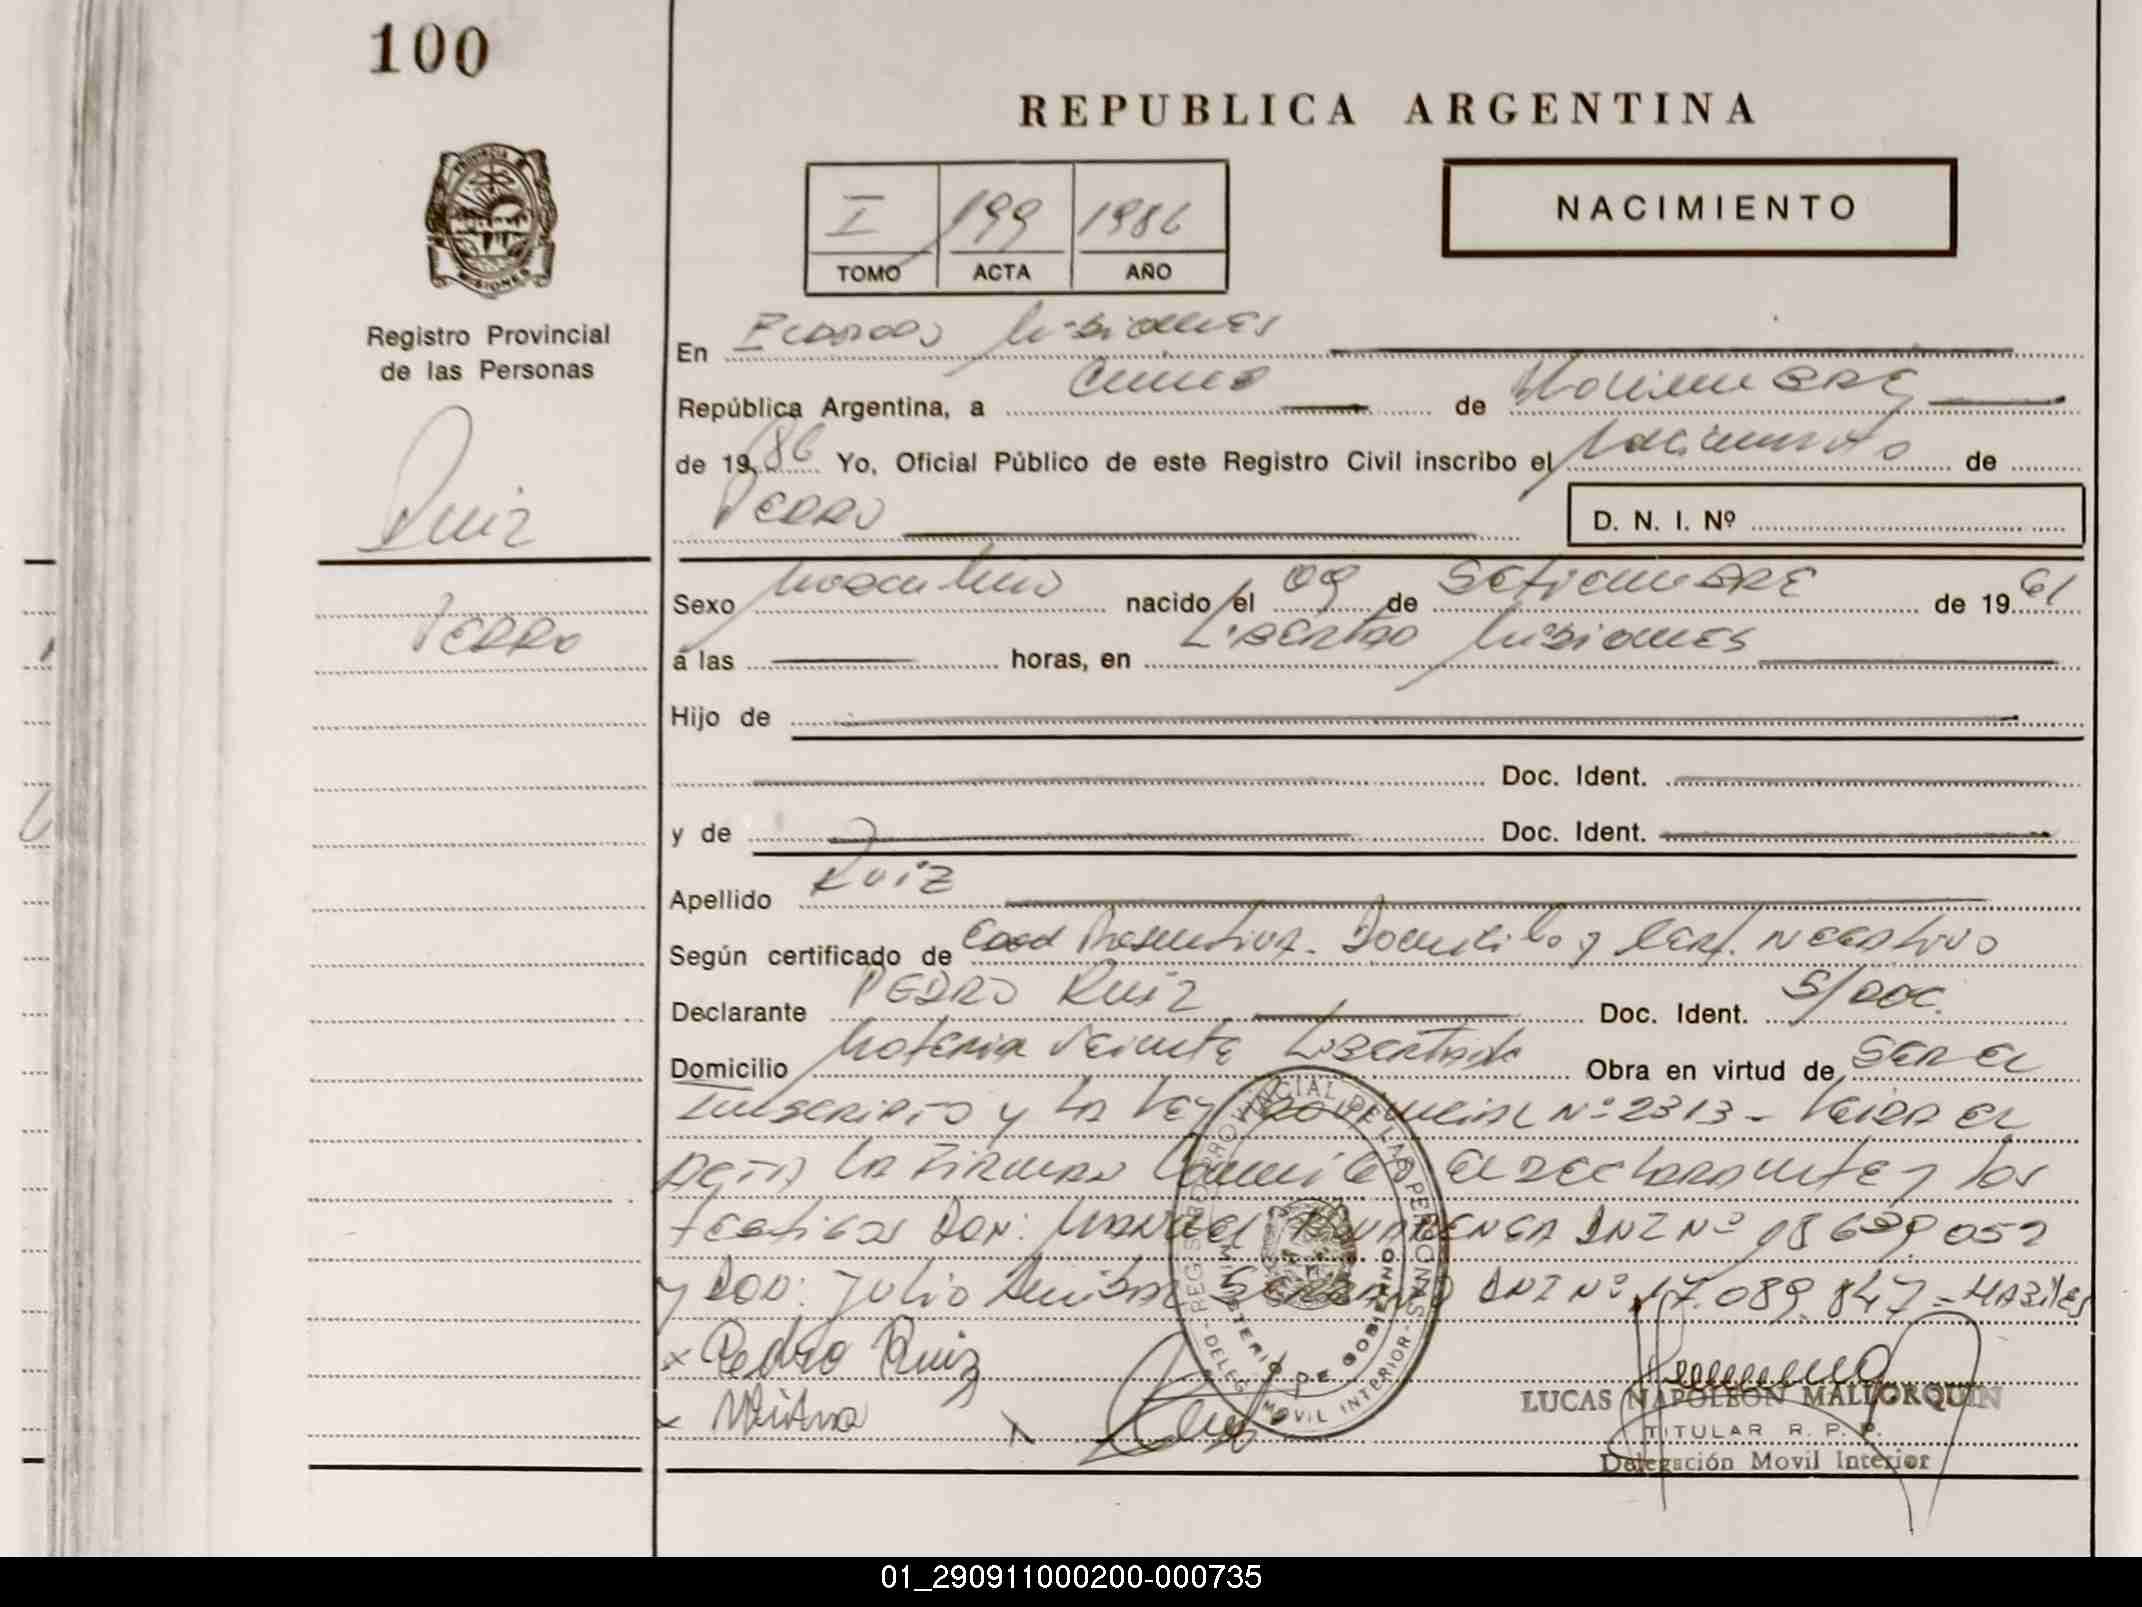 100
REPUBLICA ARGENTINA
I 199 1986
TOMO ACTA AÑO
NACIMIENTO
PROVINCIA DE MISIONES
Registro Provincial
de las Personas
Ruiz
Pedro
En Eldorado Misiones
República Argentina, a Cinco de Noviembre
de 1986 Yo, Oficial Público de este Registro Civil inscribo el Nacimiento de
Pedro
D. N. I. Nº
Sexo Masculino nacido el 09 de Setiembre de 1961
a las horas, en Libertad Misiones
Hijo de
Doc. Ident.
y de Doc. Ident.
Apellido Ruiz
Según certificado de Edad Presuntiva. Domicilio y Cert. Negativo
Declarante PEDRO Ruiz Doc. Ident. S/DOC.
Domicilio Veinte Libertad Obra en virtud de Ser el
Inscripto y La Ley Provincial Nº 2313 - Leida el
Acta La Firman Conmigo El Declarante y los
testigos Don: Manuel DNI Nº 18639052
y Don: Julio DNI Nº 17.089.847 - Habiles
x Pedro Ruiz
REGISTRO PROVINCIAL DE LAS PERSONAS
MINISTERIO DE GOBIERNO
DELEG. MOVIL INTERIOR
LUCAS NAPOLEON MALLORQUIN
TITULAR R. P. P.
Delegación Movil Interior
01_290911000200-000735